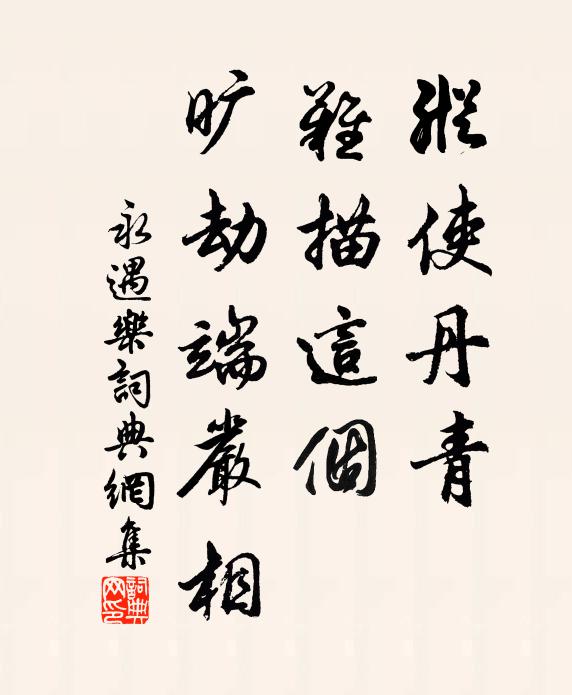 縱使丹青
難描這個
旷劫端嚴相
永遇樂詞典網集
詞典
网印